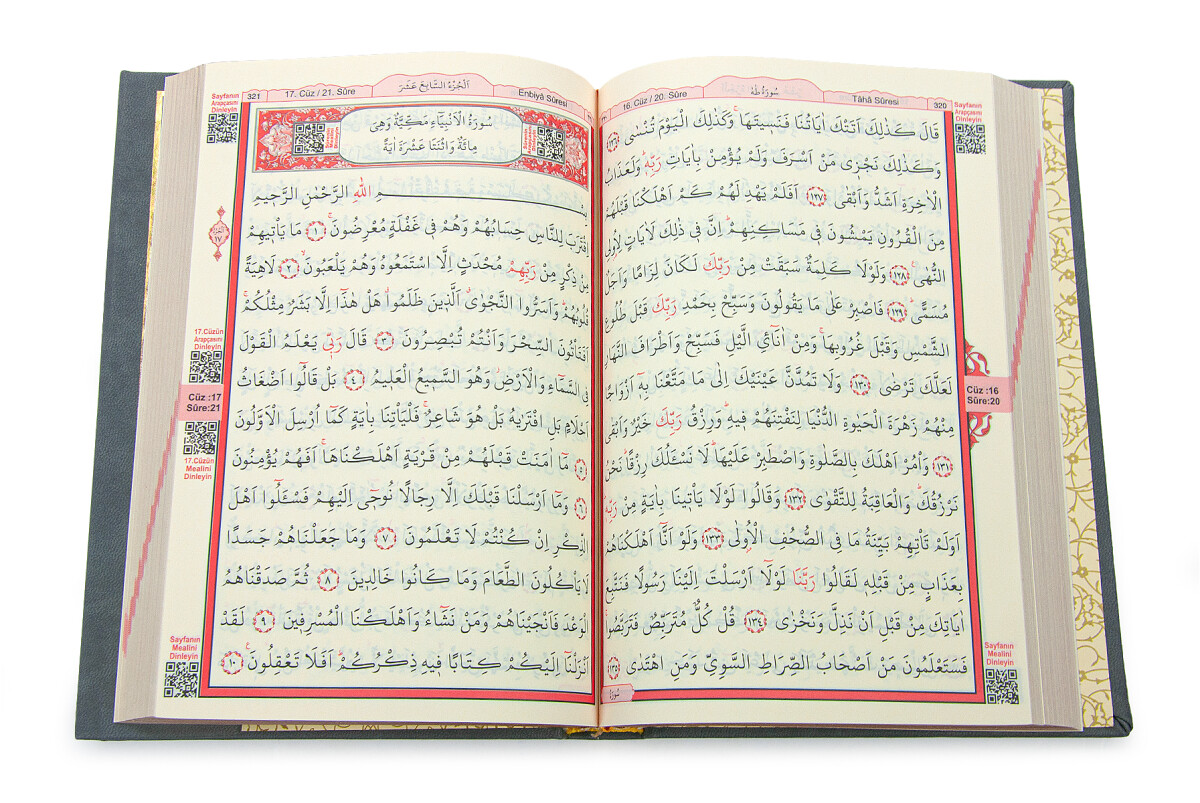 Sayfanın
Arapçasını
Dinleyin
320
Tâhâ Sûresi
سُورَةُ طٰهٰ
16. Cüz / 20. Sûre
قَالَ كَذٰلِكَ اَتَتْكَ اٰيَاتُنَا فَنَسٖيتَهَاۚ وَكَذٰلِكَ الْيَوْمَ تُنْسٰى ﴿١٢٦﴾
وَكَذٰلِكَ نَجْزٖى مَنْ اَسْرَفَ وَلَمْ يُؤْمِنْ بِاٰيَاتِ رَبِّهٖۜ وَلَعَذَابُ
الْاٰخِرَةِ اَشَدُّ وَاَبْقٰى ﴿١٢٧﴾ اَفَلَمْ يَهْدِ لَهُمْ كَمْ اَهْلَكْنَا قَبْلَهُمْ
مِنَ الْقُرُونِ يَمْشُونَ فٖى مَسَاكِنِهِمْۜ اِنَّ فٖى ذٰلِكَ لَاٰيَاتٍ لِاُولِى
النُّهٰى ﴿١٢٨﴾ وَلَوْلَا كَلِمَةٌ سَبَقَتْ مِنْ رَبِّكَ لَكَانَ لِزَامًا وَاَجَلٌ
مُسَمًّىۜ ﴿١٢٩﴾ فَاصْبِرْ عَلٰى مَا يَقُولُونَ وَسَبِّحْ بِحَمْدِ رَبِّكَ قَبْلَ طُلُوعِ
الشَّمْسِ وَقَبْلَ غُرُوبِهَاۚ وَمِنْ اٰنَآئِ الَّيْلِ فَسَبِّحْ وَاَطْرَافَ النَّهَارِ
لَعَلَّكَ تَرْضٰى ﴿١٣٠﴾ وَلَا تَمُدَّنَّ عَيْنَيْكَ اِلٰى مَا مَتَّعْنَا بِهٖٓ اَزْوَاجًا
مِنْهُمْ زَهْرَةَ الْحَيٰوةِ الدُّنْيَا لِنَفْتِنَهُمْ فٖيهِۜ وَرِزْقُ رَبِّكَ خَيْرٌ وَاَبْقٰى
﴿١٣١﴾ وَأْمُرْ اَهْلَكَ بِالصَّلٰوةِ وَاصْطَبِرْ عَلَيْهَاۜ لَا نَسْـَٔلُكَ رِزْقًاۜ نَحْنُ
نَرْزُقُكَۜ وَالْعَاقِبَةُ لِلتَّقْوٰى ﴿١٣٢﴾ وَقَالُوا لَوْلَا يَأْتٖينَا بِاٰيَةٍ مِنْ رَبِّهٖۜ
اَوَلَمْ تَأْتِهِمْ بَيِّنَةُ مَا فِى الصُّحُفِ الْاُولٰى ﴿١٣٣﴾ وَلَوْ اَنَّٓا اَهْلَكْنَاهُمْ
بِعَذَابٍ مِنْ قَبْلِهٖ لَقَالُوا رَبَّنَا لَوْلَٓا اَرْسَلْتَ اِلَيْنَا رَسُولًا فَنَتَّبِعَ
اٰيَاتِكَ مِنْ قَبْلِ اَنْ نَذِلَّ وَنَخْزٰى ﴿١٣٤﴾ قُلْ كُلٌّ مُتَرَبِّصٌ فَتَرَبَّصُواۚ
فَسَتَعْلَمُونَ مَنْ اَصْحَابُ الصِّرَاطِ السَّوِىِّ وَمَنِ اهْتَدٰى ﴿١٣٥﴾
Cüz :16
Sûre:20
Sayfanın
Mealini
Dinleyin
سُورَةُ
Sayfanın
Arapçasını
Dinleyin
321
17. Cüz / 21. Sûre
اَلْجُزْءُ السَّابِعَ عَشَرَ
Enbiyâ Sûresi
سُورَةُ الْاَنْبِيَاءِ مَكِّيَّةٌ وَهِىَ
مِائَةٌ وَاثْنَتَا عَشْرَةَ اٰيَةً
بِسْمِ اللّٰهِ الرَّحْمٰنِ الرَّحٖيمِ
اِقْتَرَبَ لِلنَّاسِ حِسَابُهُمْ وَهُمْ فٖى غَفْلَةٍ مُعْرِضُونَۚ ﴿١﴾ مَا يَأْتٖيهِمْ
مِنْ ذِكْرٍ مِنْ رَبِّهِمْ مُحْدَثٍ اِلَّا اسْتَمَعُوهُ وَهُمْ يَلْعَبُونَۙ ﴿٢﴾ لَاهِيَةً
قُلُوبُهُمْۜ وَاَسَرُّوا النَّجْوٰىۗ اَلَّذٖينَ ظَلَمُواۗ هَلْ هٰذَٓا اِلَّا بَشَرٌ مِثْلُكُمْۚ
اَفَتَأْتُونَ السِّحْرَ وَاَنْتُمْ تُبْصِرُونَ ﴿٣﴾ قَالَ رَبّٖى يَعْلَمُ الْقَوْلَ
فِى السَّمَٓاءِ وَالْاَرْضِۘ وَهُوَ السَّمٖيعُ الْعَلٖيمُ ﴿٤﴾ بَلْ قَالُٓوا اَضْغَاثُ
اَحْلَامٍ بَلِ افْتَرٰيهُ بَلْ هُوَ شَاعِرٌۚ فَلْيَأْتِنَا بِاٰيَةٍ كَمَٓا اُرْسِلَ الْاَوَّلُونَ
﴿٥﴾ مَٓا اٰمَنَتْ قَبْلَهُمْ مِنْ قَرْيَةٍ اَهْلَكْنَاهَاۚ اَفَهُمْ يُؤْمِنُونَ
﴿٦﴾ وَمَٓا اَرْسَلْنَا قَبْلَكَ اِلَّا رِجَالًا نُوحٖٓى اِلَيْهِمْ فَسْـَٔلُٓوا اَهْلَ
الذِّكْرِ اِنْ كُنْتُمْ لَا تَعْلَمُونَ ﴿٧﴾ وَمَا جَعَلْنَاهُمْ جَسَدًا
لَا يَأْكُلُونَ الطَّعَامَ وَمَا كَانُوا خَالِدٖينَ ﴿٨﴾ ثُمَّ صَدَقْنَاهُمُ
الْوَعْدَ فَاَنْجَيْنَاهُمْ وَمَنْ نَشَٓاءُ وَاَهْلَكْنَا الْمُسْرِفٖينَ ﴿٩﴾ لَقَدْ
اَنْزَلْنَٓا اِلَيْكُمْ كِتَابًا فٖيهِ ذِكْرُكُمْۜ اَفَلَا تَعْقِلُونَ۟ ﴿١٠﴾
اَلْجُزْءُ
١٧
17.Cüzün
Arapçasını
Dinleyin
Cüz :17
Sûre:21
17.Cüzün
Mealini
Dinleyin
Sayfanın
Mealini
Dinleyin